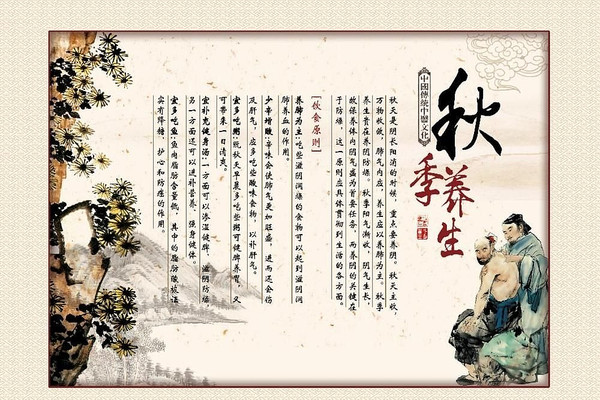 秋季养生
中國傳統中醫文化
秋天是阴长阳消的时候,重点要养阴。秋天主收,
万物收敛,肺气内应,养生应以养肺为主。秋季
养生贵在养阴防燥。秋季阳气渐收,阴气生长,
故保养体内阴气盛为首要任务,而养阴的关键在
于防燥,这一原则应具体贯彻到生活的各方面。
[饮食原则]
养肺为主:吃些滋阴润燥的食物可以起到滋阴润
肺养血的作用。
少辛增酸:辛味会使肺气更加旺盛,进而还会伤
及肝气,应多吃些酸味食物,以补肝气。
宜多吃粥:晚秋天早晨多吃些粥可健脾养胃,又
可带来一日清爽。
宜补充健身汤:一方面可以渗湿健脾、滋阴防燥,
另一方面还可以进补营养、强身健体。
宜多吃鱼:鱼肉脂肪含量低,其中的脂肪酸被证
实有降糖、护心和防癌的作用。